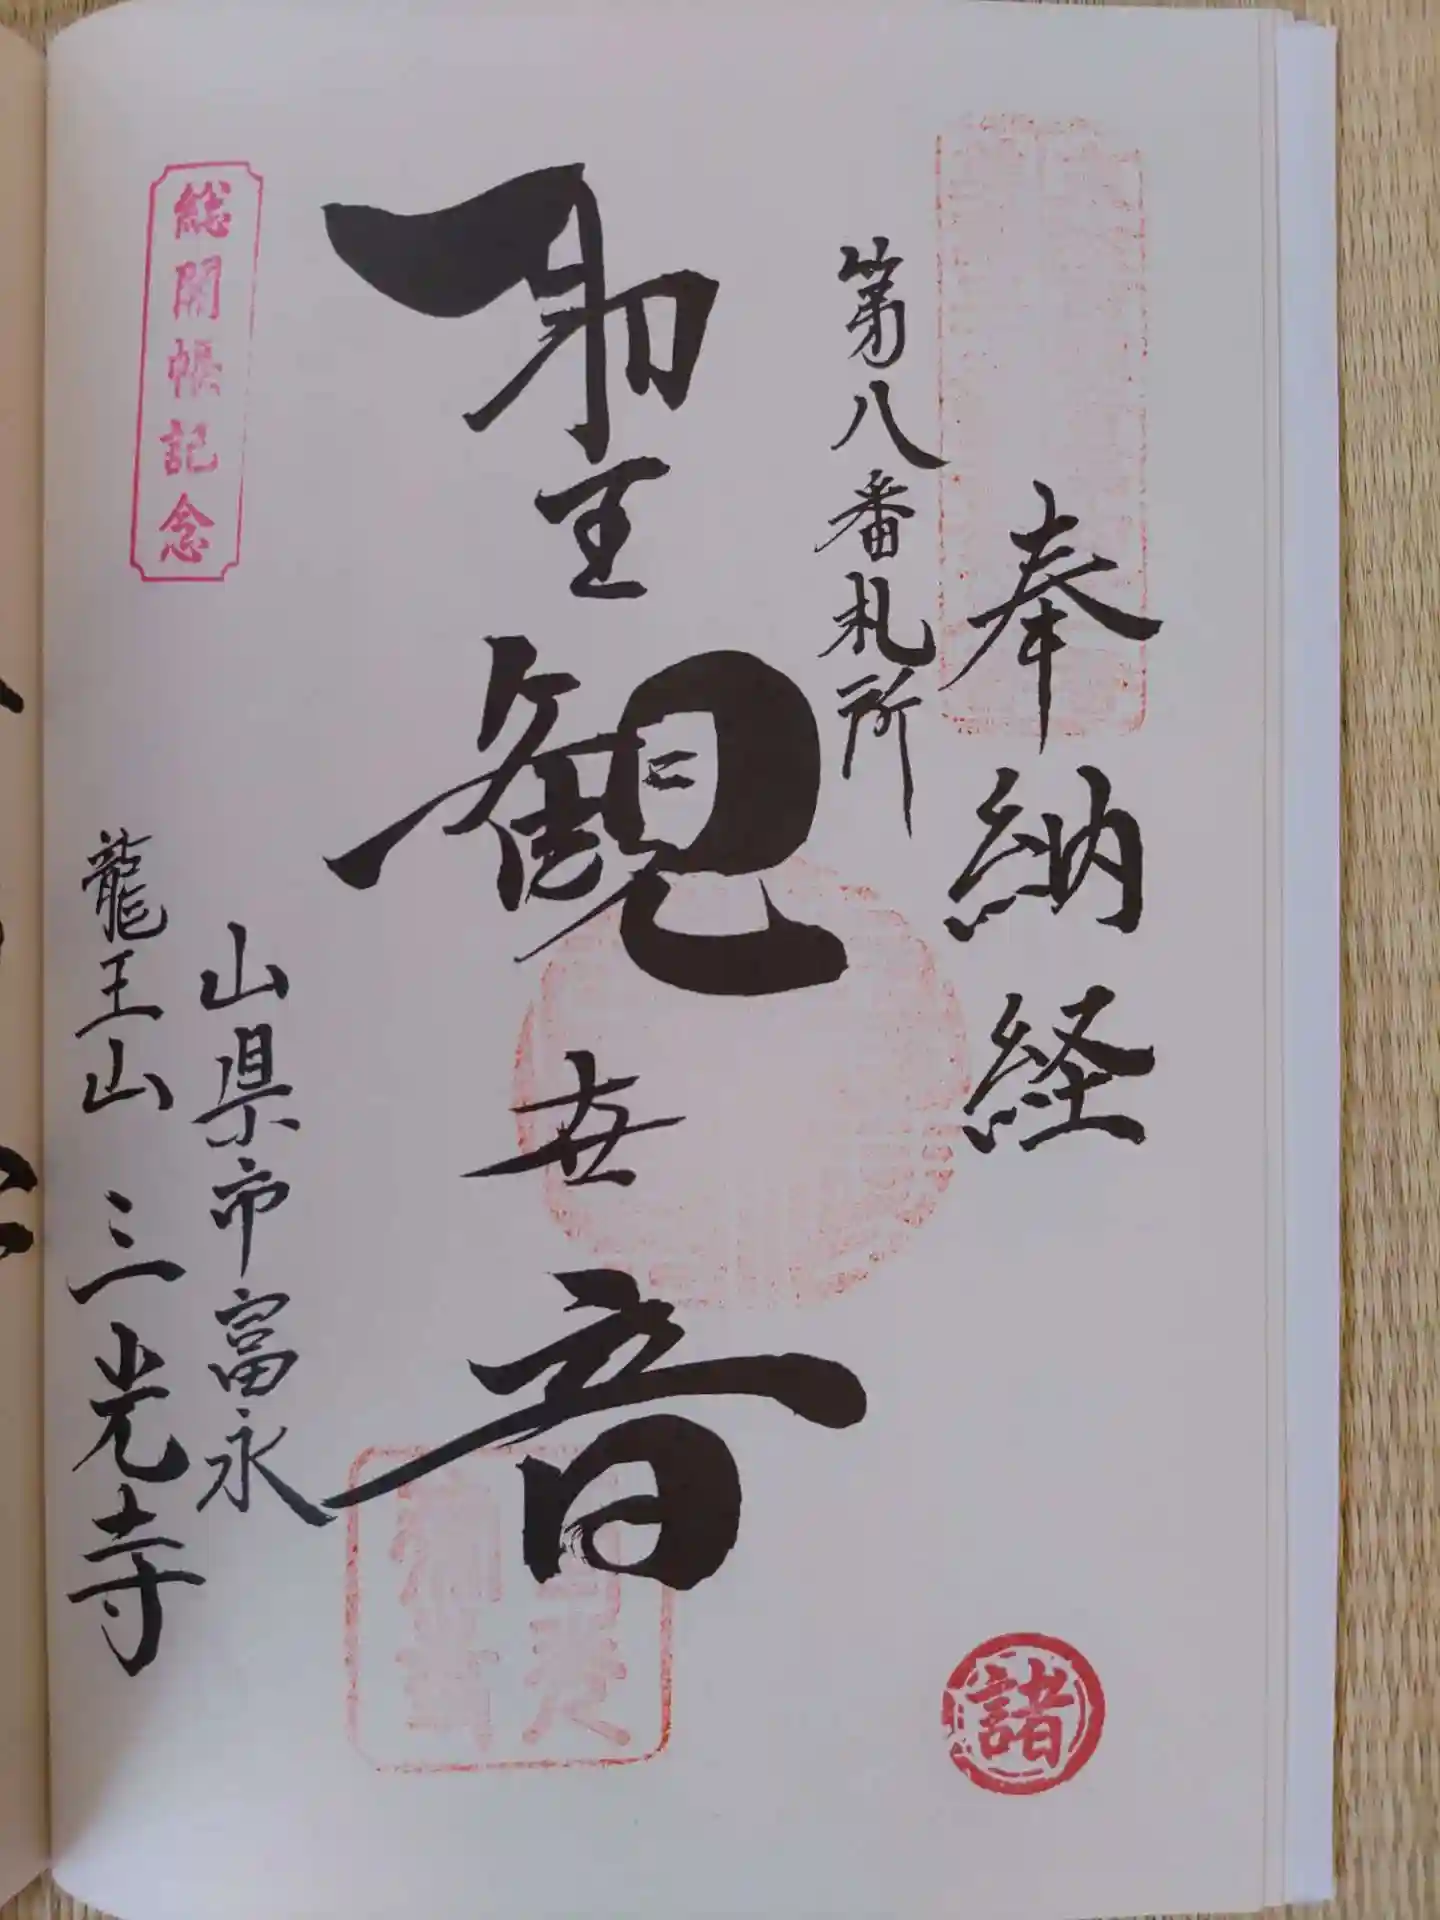 奉納経
第八番札所
聖観世音
総開帳記念
山県市富永
龍王山 三光寺
諸